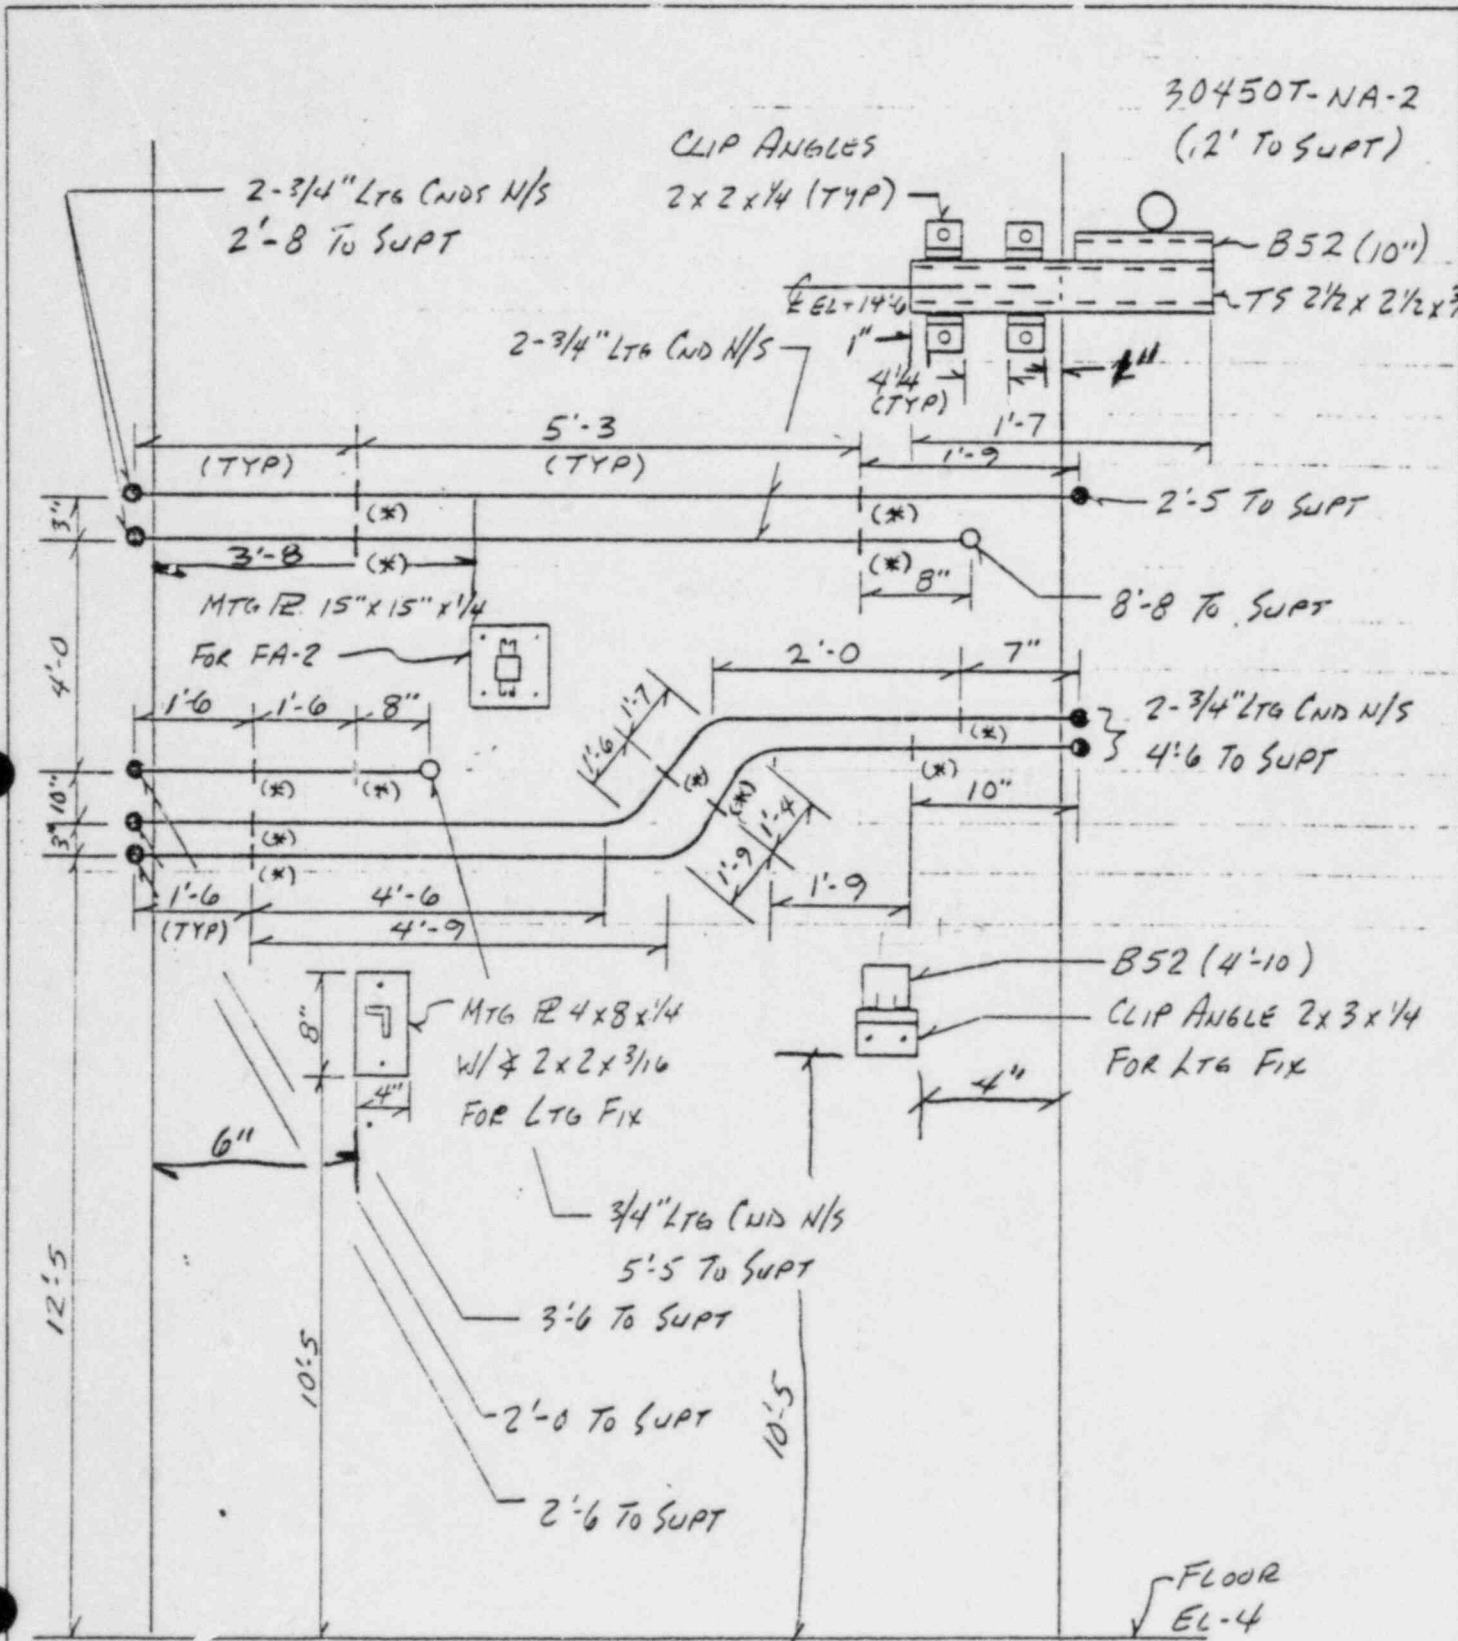 30450T-NA-2
(.2' TO SUPT)
CLIP ANGLES
2 x 2 x 1/4 (TYP)
2-3/4" LTG CNDS N/S
2'-8 TO SUPT
B52 (10")
TS 2 1/2 x 2 1/2 x 3
℄ EL+14'6
1"
1"
4 1/4
(TYP)
2-3/4" LTG CND N/S
1'-7
5'-3
1'-9
(TYP)
(TYP)
2'-5 TO SUPT
3"
(*)
(*)
3'-8
(*)
(*)
8"
8'-8 TO SUPT
MTG PL 15" x 15" x 1/4
FOR FA-2
4'-0
2'-0
7"
1'-6
1'-6
8"
1'-7
1'-6
2-3/4" LTG CND N/S
4'-6 TO SUPT
(*)
(*)
(*)
(*)
(*)
(*)
10"
10"
3"
(*)
(*)
1'-4
1'-9
1'-9
1'-6
(TYP)
4'-6
4'-9
B52 (4'-10)
CLIP ANGLE 2 x 3 x 1/4
FOR LTG FIX
MTG PL 4 x 8 x 1/4
W/ ∡ 2 x 2 x 3/16
FOR LTG FIX
8"
4"
4"
6"
3/4" LTG CND N/S
5'-5 TO SUPT
3'-6 TO SUPT
2'-0 TO SUPT
2'-6 TO SUPT
12'-5
10'-5
10'-5
FLOOR
EL-4